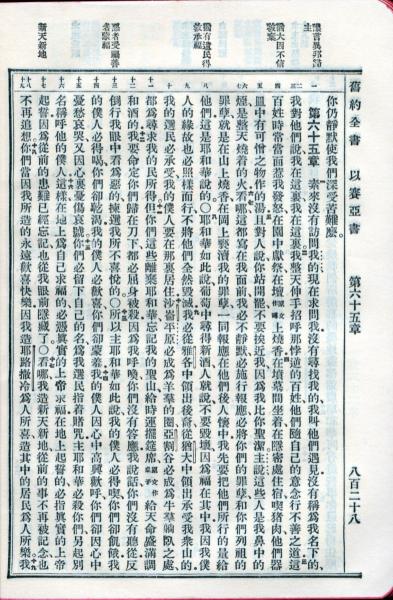 舊約全書 以賽亞書 第六十五章 八百二十八
言異邦歸主
猶大因不信
猶有遺民得
惡者受禍善者蒙福
新天新地
你仍靜默使我們深受苦難麼。
一 第六十五章 素來沒有訪問我的現在求問我沒有尋找我的我叫他們遇見沒有稱為我名下的
我對他們說我在這裏我在這裏我整天伸手招呼那悖逆的百姓他們隨自己的意念行不善之道這
百姓時常當面惹我發怒在園中獻祭在壇原文作磚上燒香在墳墓間坐着在隱密處住宿喫猪肉他們器
皿中有可憎之物作的湯且對人說你站開罷不要挨近我因為我比你聖潔主說這些人是我鼻中的
煙是整天燒着的火看哪這都寫在我面前我必不靜默必施行報應必將你們的罪孽和你們列祖的
罪孽就是在山上燒香在岡上褻瀆我的罪孽一同報應在他們後人懷中我先要把他們所行的量給
他們這是耶和華說的○耶和華如此說葡萄中尋得新酒人就說不要毀壞因為福在其中我因我僕
人的緣故也必照樣而行不將他們全然毀滅我必從雅各中領出後裔從猶大中領出承受我衆山的
我的選民必承受我的僕人要在那裏居住沙崙平原必成為羊羣的圈亞割谷必成為牛羣躺臥之處
都為尋求我的民所得但你們這些離棄耶和華忘記我的聖山給時運擺筵席原文作桌子給天命盛滿調
和酒的我要命定你們歸在刀下都必屈身被殺因為我呼喚你們沒有答應我說話你們沒有聽從反
倒行我眼中看為惡的揀選我所不喜悅的○所以主耶和華如此說我的僕人必得喫你們却飢餓我
的僕人必得喝你們却乾渴我的僕人必歡喜你們却蒙羞我的僕人因心中高興歡呼你們却因心中
憂愁哀哭又因心裏憂傷哀號你們必留下自己的名為我選民指着賭咒主耶和華必殺你們另起別
名稱呼他的僕人這樣在地上為自己求福的必憑真實的上帝求福在地上起誓的必指真實的上帝
起誓因為從前的患難已經忘記也從我眼前隱藏了○看哪我造新天新地從前的事不再被記念也
不再追想你們當因我所造的永遠歡喜快樂因我造耶路撒冷為人所喜造其中的居民為人所樂我